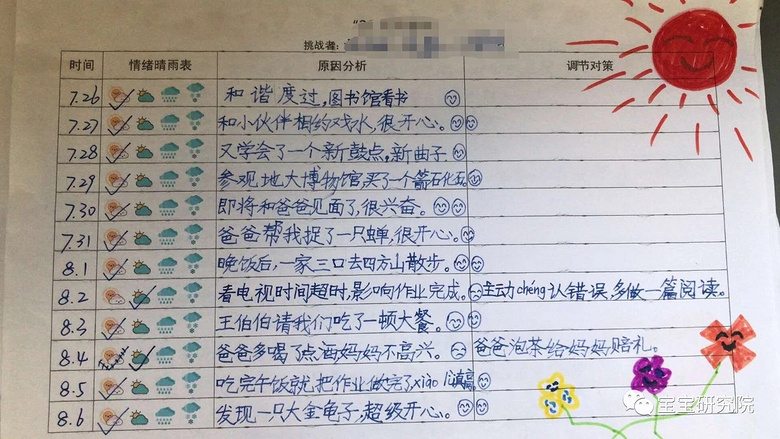 挑战者:
时间 情绪晴雨表 原因分析 调节对策
7.26 和谐度过,图书馆看书
7.27 和小伙伴相约戏水,很开心。
7.28 又学会了一个新鼓点,新曲子
7.29 参观地大博物馆,买了一个箭石化石
7.30 即将和爸爸见面了,很兴奋。
7.31 爸爸帮我捉了一只蝉,很开心。
8.1 晚饭后,一家三口去四方山散步。
8.2 看电视时间超时,影响作业完成。 主动chéng认错误,多做一篇阅读。
8.3 王伯伯请我们吃了一顿大餐。
8.4 爸爸多喝了点酒妈妈不高兴。 爸爸泡茶给妈妈赔礼。
8.5 吃完午饭就把作业做完了xiào
8.6 发现一只大金龟子,超级开心。
宝宝研究院